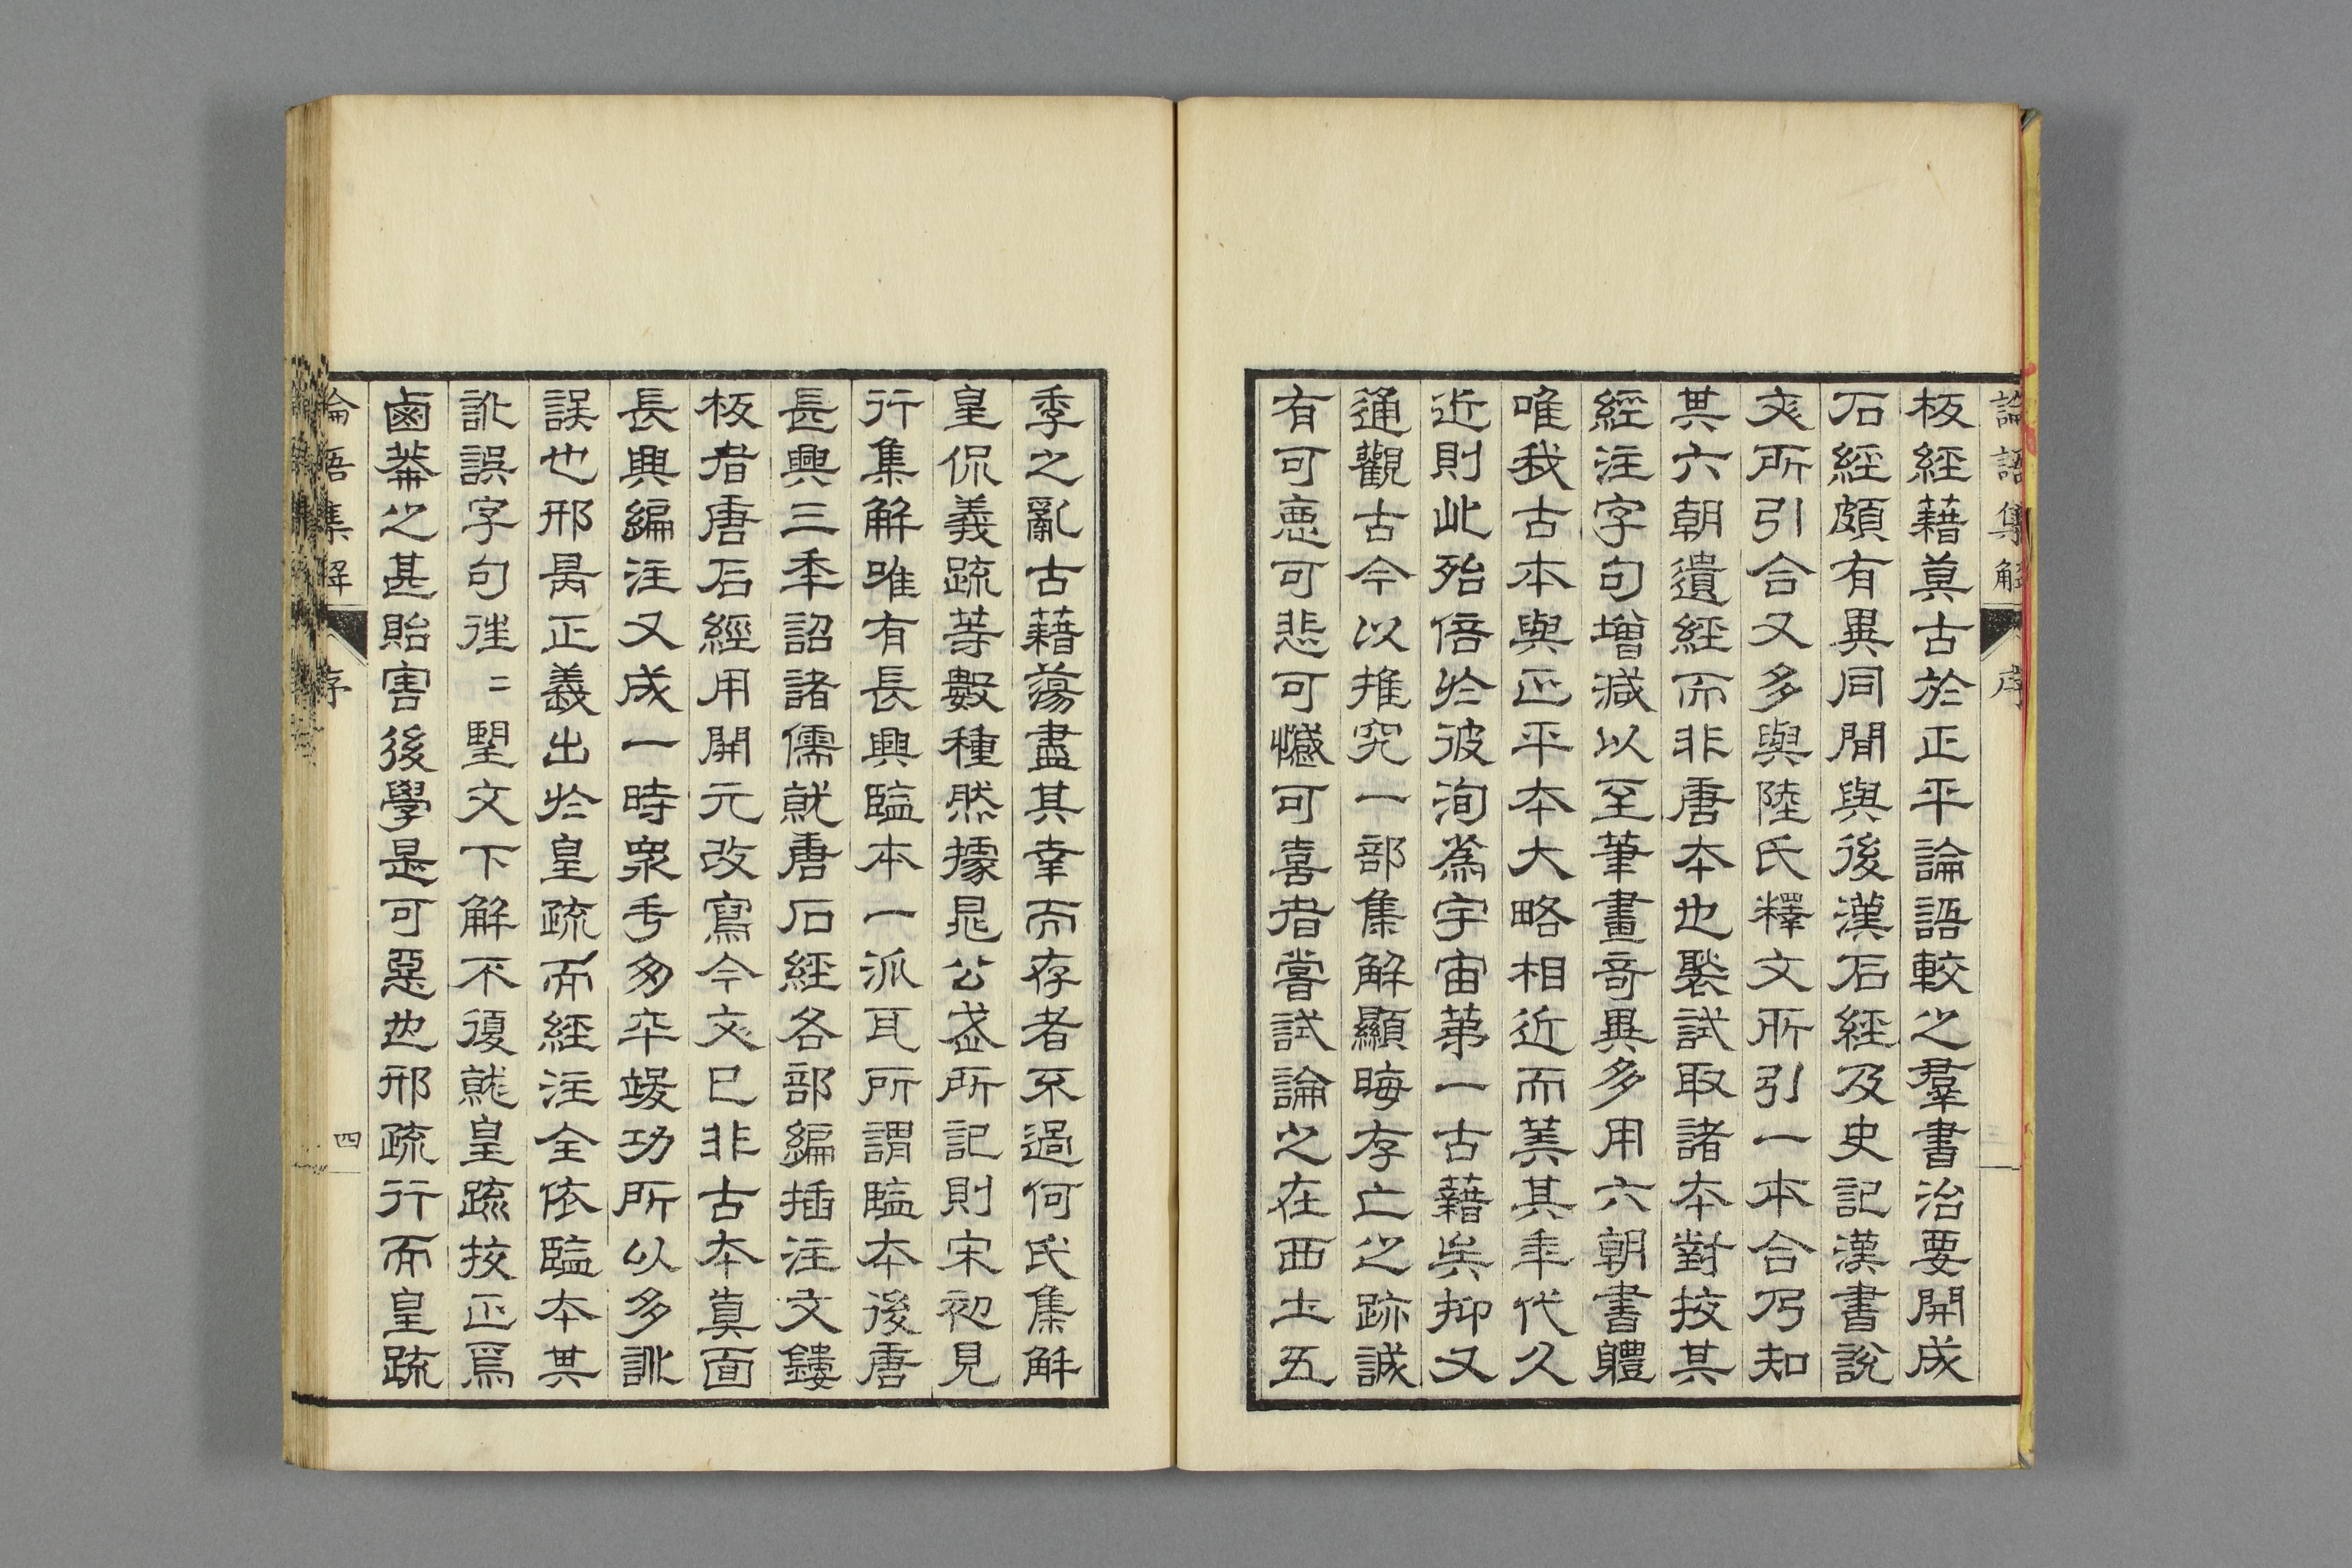 論語集解 序 三
板經藉莫古於正平論語較之羣書治要開成
石經頗有異同間與後漢石經及史記漢書說
文所引合又多與陸氏釋文所引一本合乃知
其六朝遺經而非唐本也褧試取諸本對挍其
經注字句增減以至筆畫奇異多用六朝書軆
唯我古本與正平本大略相近而其年代久
近則此殆倍於彼洵為宇宙第一古藉矣抑又
通觀古今以推究一部集解顯晦存亡之跡誠
有可惡可悲可憾可喜者嘗試論之在西土五
季之亂古藉蕩盡其幸而存者不過何氏集解
皇侃義疏等數種然據晁公武所記則宋初見
行集解唯有長興監本一派耳所謂監本後唐
長興三年詔諸儒就唐石經各部編插注文鏤
板者唐石經用開元改寫今文已非古本真面
長興編注又成一時眾手匆卒竣功所以多訛
誤也邢昺正義出於皇疏而經注全依監本其
訛誤字句往〻望文下解不復就皇疏挍正焉
鹵莽之甚貽害後學是可惡也邢疏行而皇疏
論語集解 序 四